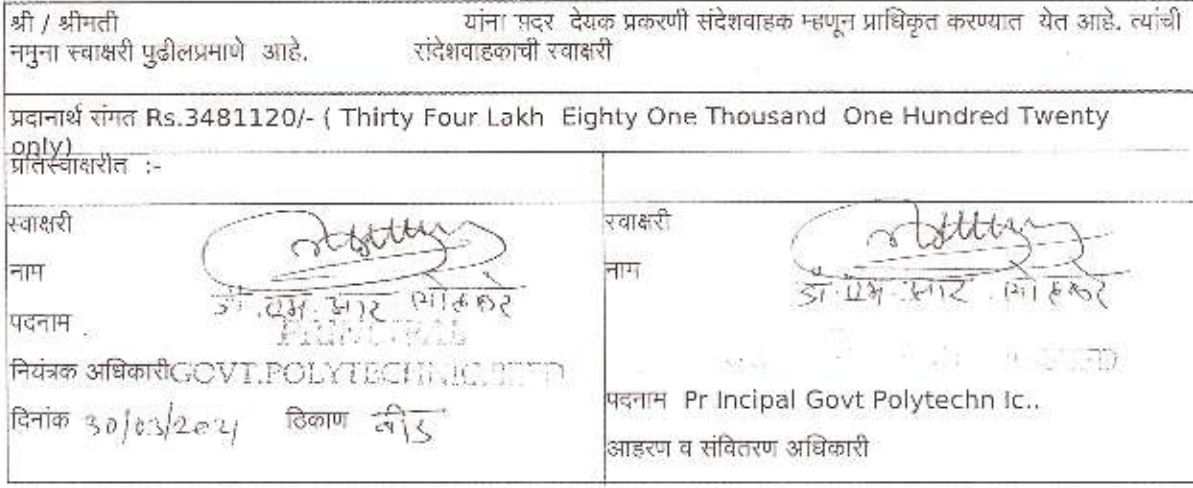 श्री / श्रीमती यांना सदर देयक प्रकरणी संदेशवाहक म्हणून प्राधिकृत करण्यात येत आहे. त्यांची
नमुना स्वाक्षरी पुढीलप्रमाणे आहे. संदेशवाहकाची स्वाक्षरी
प्रदानार्थ संमत Rs.3481120/- ( Thirty Four Lakh Eighty One Thousand One Hundred Twenty
only)
प्रतिस्वाक्षरीत :-
स्वाक्षरी
नाम
डॉ. एम. आर.
पदनाम
PRINCIPAL
नियंत्रक अधिकारी GOVT.POLYTECHNIC
दिनांक 30/03/2021 ठिकाण बीड
स्वाक्षरी
नाम
डॉ. एम. आर.
पदनाम Pr Incipal Govt Polytechn Ic..
आहरण व संवितरण अधिकारी